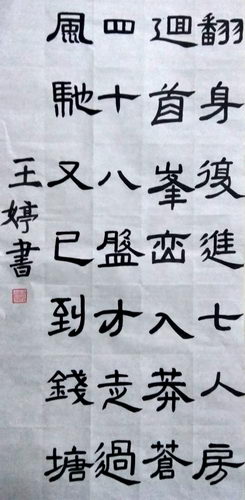 翻身復進七人房
迴首峯巒入莽蒼
四十八盤才走過
風馳又已到錢塘
王婷書